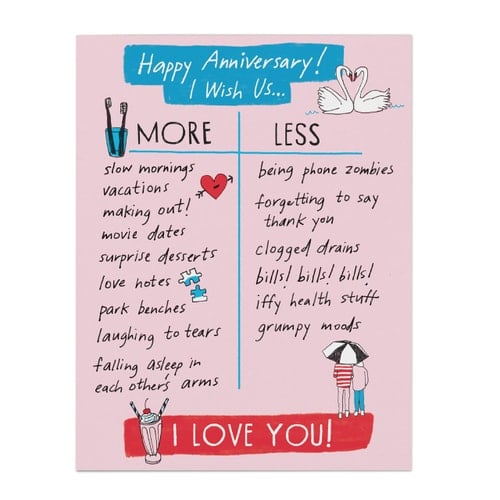 Happy Anniversary!
I Wish Us...
MORE
slow mornings
vacations
making out!
movie dates
surprise desserts
love notes
park benches
laughing to tears
falling asleep in
each other's arms
LESS
being phone zombies
forgetting to say
thank you
clogged drains
bills! bills! bills!
iffy health stuff
grumpy moods
I LOVE YOU!